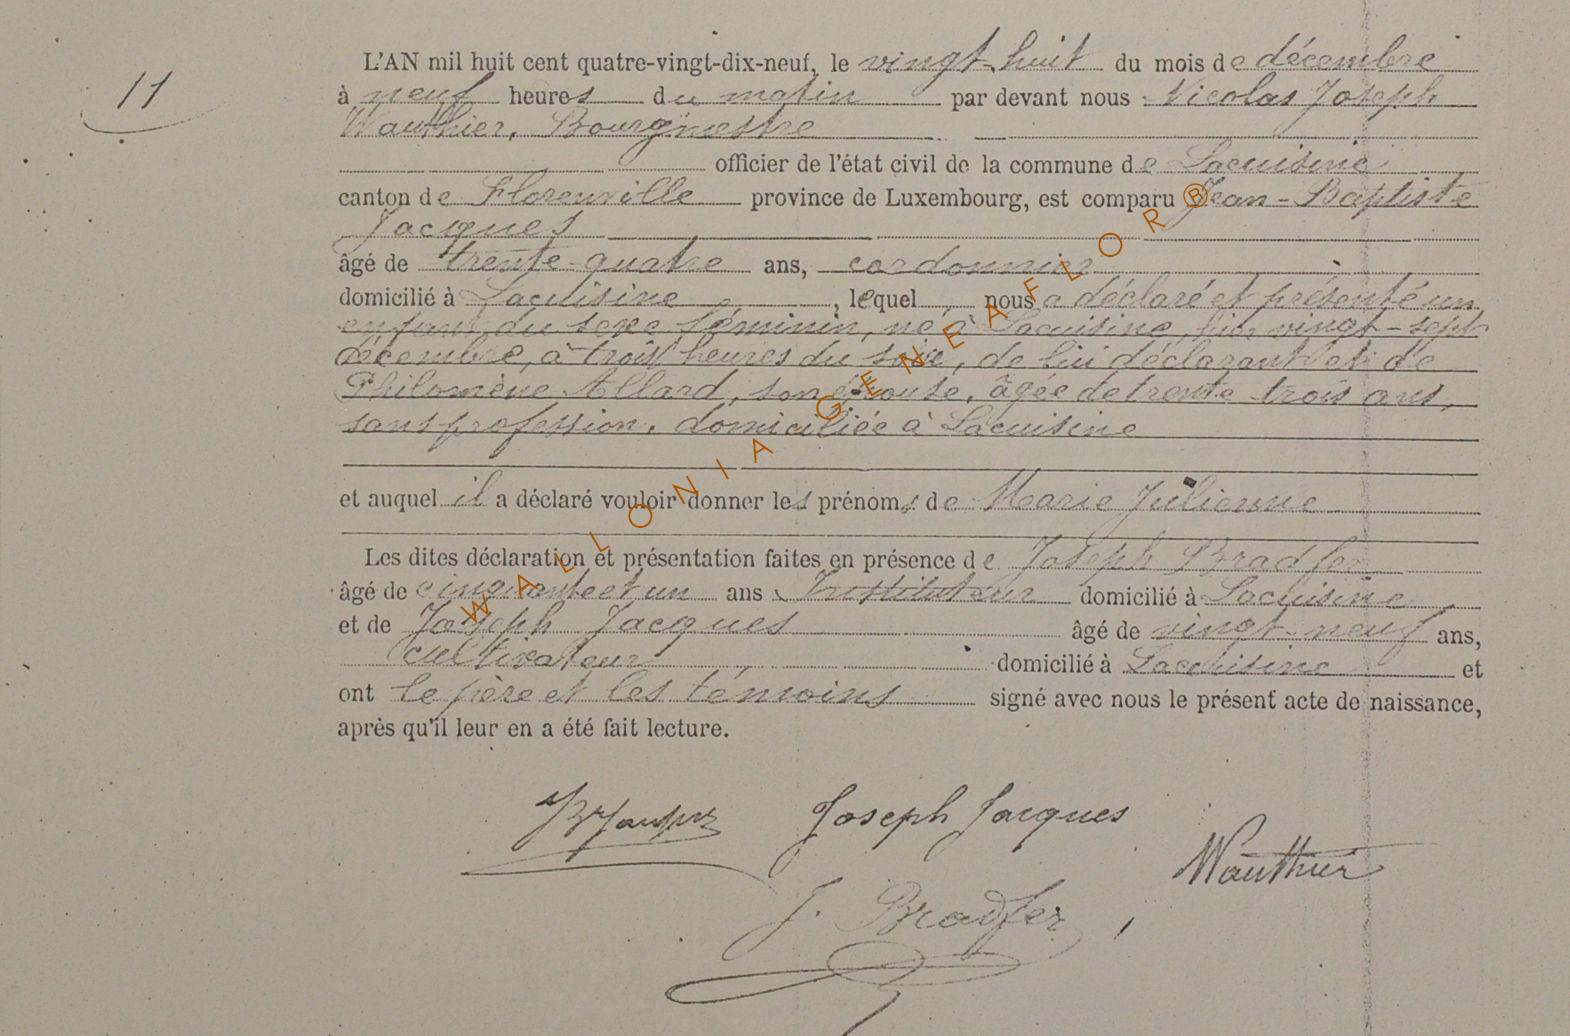 L'AN mil huit cent quatre-vingt-dix-neuf, le vingt-huit du mois de décembre
11
à neuf heures du matin par devant nous Nicolas Joseph
Wauthier, Bourgmestre
officier de l'état civil de la commune de Lacuisine
canton de Florenville province de Luxembourg, est comparu Jean-Baptiste
Jacques
âgé de trente-quatre ans, cordonnier
domicilié à Lacuisine, lequel nous a déclaré et présenté un
enfant du sexe féminin, né à Lacuisine, hier vingt-sept
décembre, à trois heures du soir, de lui déclarant et de
Philomène Allard, son épouse, âgée de trente trois ans,
sans profession, domiciliée à Lacuisine
et auquel il a déclaré vouloir donner les prénoms de Marie Julienne
Les dites déclaration et présentation faites en présence de Joseph Bradfer
âgé de cinquante et un ans Instituteur domicilié à Lacuisine
et de Joseph Jacques âgé de vingt-neuf ans,
cultivateur domicilié à Lacuisine et
ont le père et les témoins signé avec nous le présent acte de naissance,
après qu'il leur en a été fait lecture.
Joseph Jacques
Wauthier
J. Bradfer
WALLONIA GENEAFLOR®